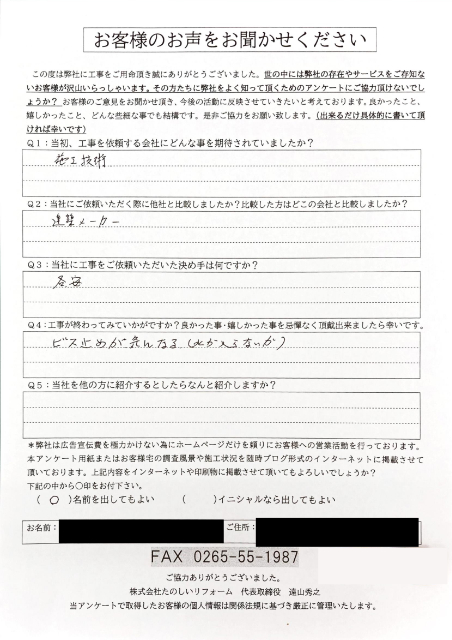 お客様のお声をお聞かせください
この度は弊社に工事をご用命頂き誠にありがとうございました。世の中には弊社の存在やサービスをご存知な
いお客様が沢山いらっしゃいます。その方たちに弊社をよく知って頂くためのアンケートにご協力頂けないでし
ょうか？お客様のご意見をお聞かせ頂き、今後の活動に反映させていきたいと考えております。良かったこと、
嬉しかったこと、どんな些細な事でも結構です。是非ご協力をお願い致します。（出来るだけ具体的に書いて頂
ければ幸いです）
Q１：当初、工事を依頼する会社にどんな事を期待されていましたか？
施工技術
Q２：当社にご依頼いただく際に他社と比較しましたか？比較した方はどこの会社と比較しましたか？
建築メーカー
Q３：当社に工事をご依頼いただいた決め手は何ですか？
Q４：工事が終わってみていかがですか？良かった事・嬉しかった事を忌憚なく頂戴出来ましたら幸いです。
ビス止めが気になる（水が入らないか）
Q５：当社を他の方に紹介するとしたらなんと紹介しますか？
＊弊社は広告宣伝費を極力かけない為にホームページだけを頼りにお客様への営業活動を行っております。
本アンケート用紙またはお客様宅の調査風景や施工状況を随時ブログ形式のインターネットに掲載させて
頂いております。上記内容をインターネットや印刷物に掲載させて頂いてもよろしいでしょうか？
下記の中から〇印をお付下さい。
（ 〇 ）名前を出してもよい （ ）イニシャルなら出してもよい
お名前： ご住所：
FAX 0265-55-1987
ご協力ありがとうございました。
株式会社たのしいリフォーム 代表取締役 遠山秀之
当アンケートで取得したお客様の個人情報は関係法規に基づき厳正に管理いたします。